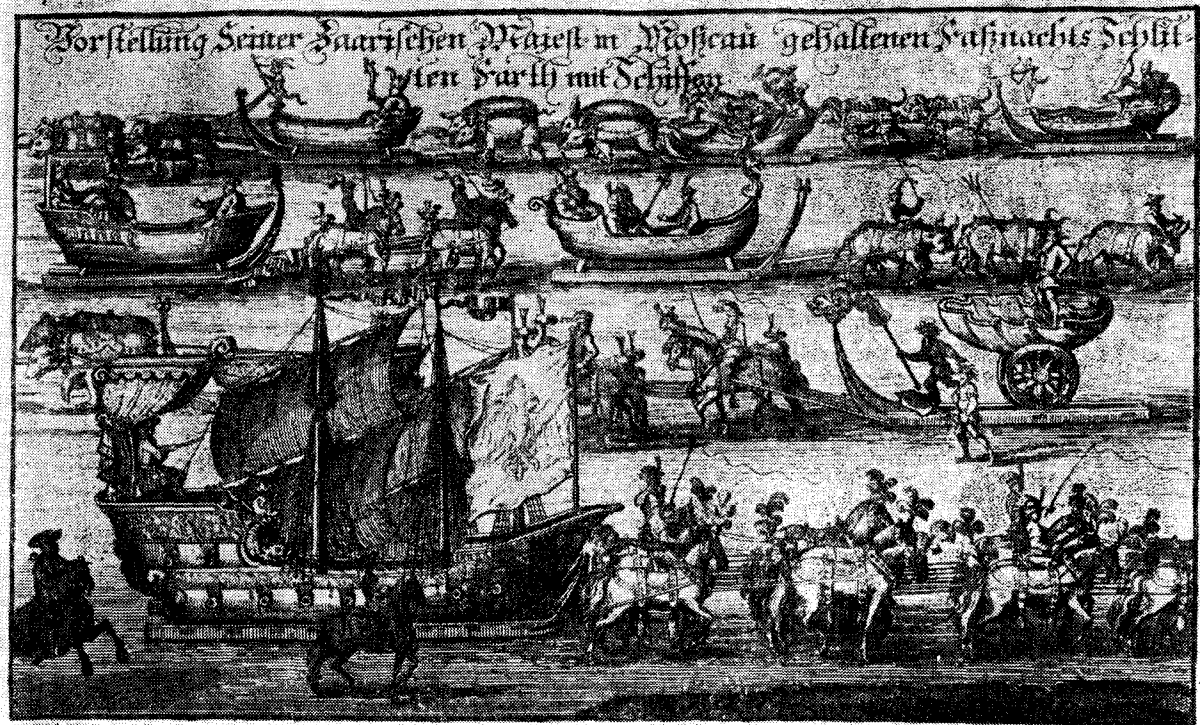 Vorstellung Seiner Zaarischen Majest in Moßcau gehaltenen Faßnachts Schlit-
ten Farth mit Schiffen